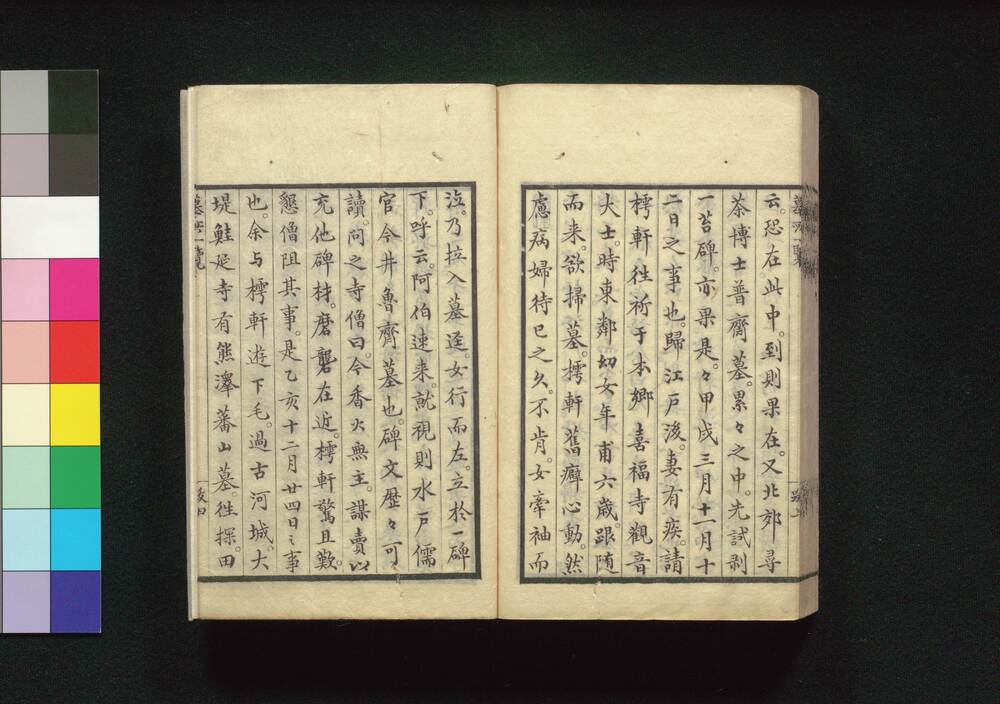 云。恐在此中。到則果在。又北郊尋
茶博士普齋墓。累々之中。先試剥
一苔碑。亦果是。々甲戌三月十一月十
二日之事也。歸江戸後。妻有疾。請
樗軒往祈于本鄉喜福寺觀音
大士。時東鄰幼女年甫六歲。跟随
而来。欲掃墓。樗軒舊癖心動。然
慮病婦待已之久。不肯。女牽袖而
泣。乃拉入墓逕。女行而左。立於一碑
下。呼云。阿伯速来。就視則水戸儒
官今井魯齋墓也。碑文歴々可
讀。問之寺僧曰。今香火無主。謀賣以
充他碑材。磨礱在近。樗軒驚且歎。
懇僧阻其事。是乙亥十二月廿四日之事
也。余与樗軒遊下毛。過古河城。大
堤鮭延寺有熊澤蕃山墓。往探。田
墓所一覽
跋四